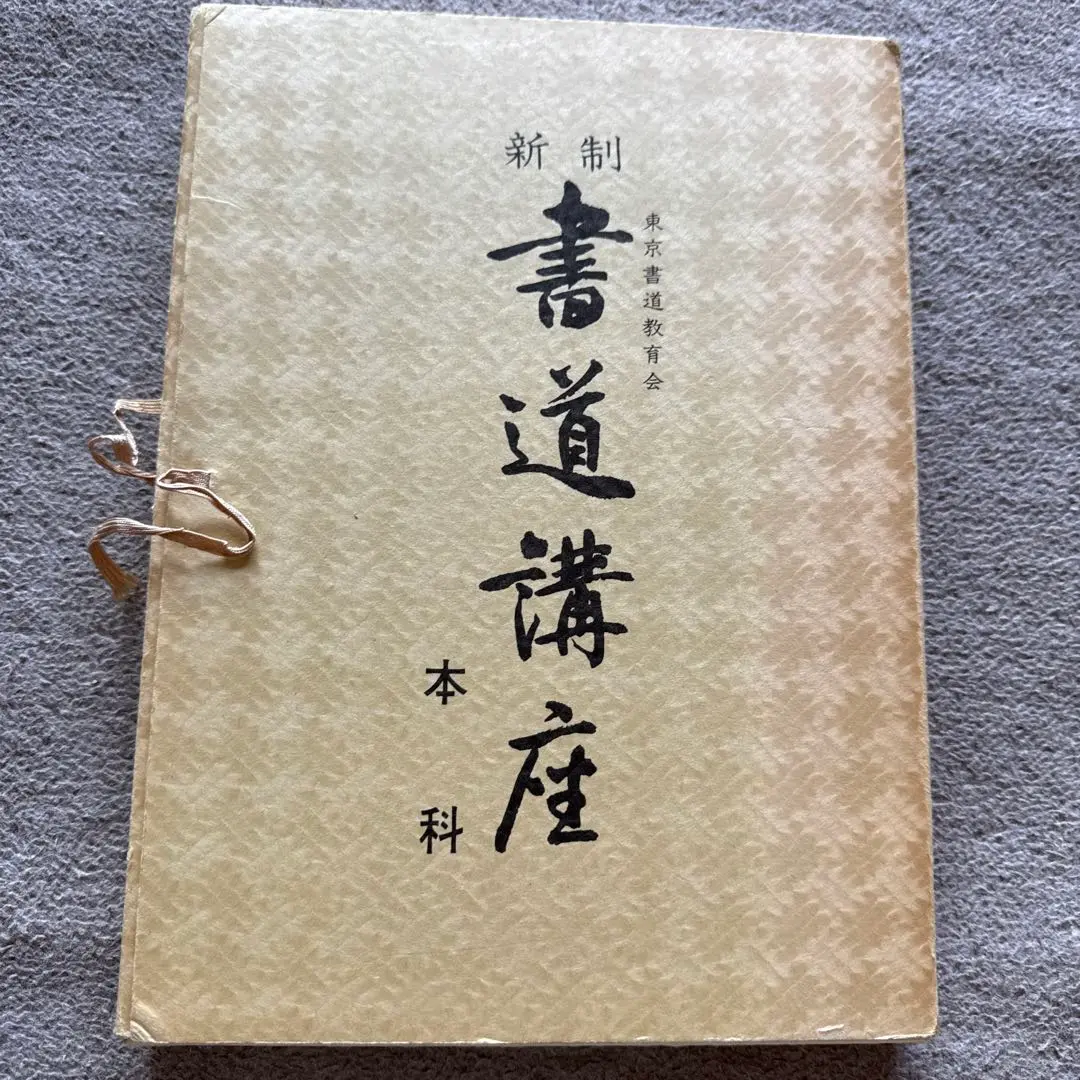 新制
東京書道教育会
書道講座
本科